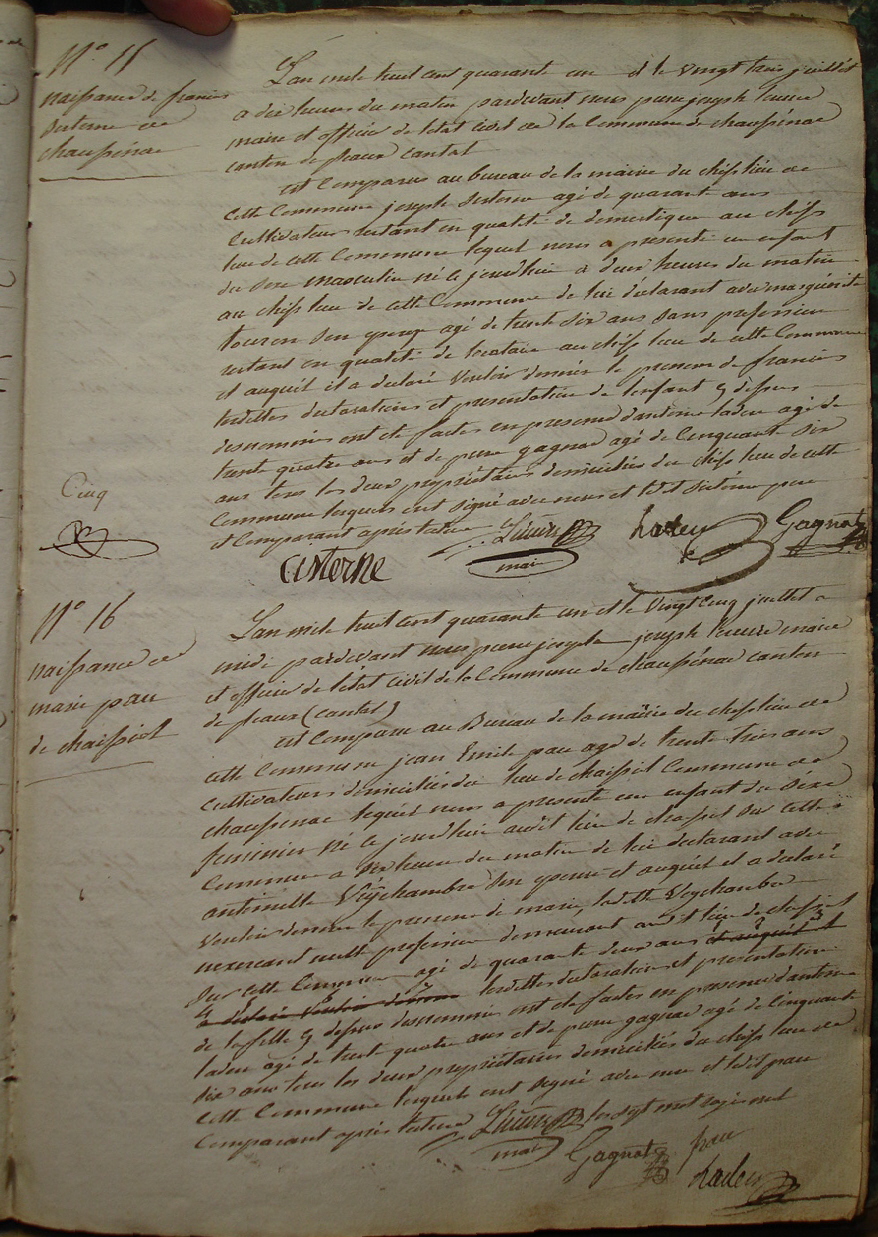 N° 15
naissance de francois
Sisterne de
chaussenac
L'an mil huit cent quarante un et le vingt trois juillet
a dix heures du matin pardevant nous pierre joseph
maire et officier de letat civil de la Commune de chaussenac
canton de pleaux cantal
est Comparu au bureau de la mairie du chef lieu de
cette Commune joseph Sisterne agé de quarante ans
Cultivateur restant en qualité de domestique au chef
lieu de cette Commune lequel nous a presenté un enfant
du Sexe masculin né ce jourdhui a deux heures du matin
au chef lieu de cette Commune de lui déclarant avec marguérite
touron Son epouse agé de trente Six ans Sans profession
restant en qualité de locataire au chef lieu de cette Commune
et auquel il a declaré Vouloir donner le prenom de francois
lesdittes declarations et presentation de lenfant cy dessus
denommé ont eté faites en presence dantoine ladeu agé de
trente quatre ans et de pierre gagnac agé de Cinquante Six
ans tous les deux propriétaires domiciliés du chef lieu de cette
Commune lesquels ont signé avec nous et ledit Sisterne pere
et Comparant apres lecture
Cinq
maire
Ladeu
Gagnac
Cisterne
N° 16
naissance de
marie pau
de chaissiol
L'an mil huit cent quarante un et le Vingt Cinq juillet a
midi pardevant nous pierre joseph joseph maire
et officier de letat civil de la Commune de chaussenac canton
de pleaux (cantal)
est Comparu au Bureau de la mairie du chef lieu de
cette Commune jean pau agé de trente trois ans
Cultivateur domicilié du lieu de chaissiol Commune de
chaussenac lequel nous a presenté un enfant du Séxe
feminin né ce jourdhui audit lieu de chaissiol Sur cette
Commune a Six heures du matin de lui declarant avec
antoinette Veychambre Son epouse et auquel il a declaré
Vouloir donner le prenom de marie, ladite Veychambre
nexercant nulle profession demeurant audit lieu de chaissiol
Sur cette Commune agé de quarante deux ans et auquel il
a declaré Vouloir donner lesdittes declaration et presentation
de la fille cy dessus denommé ont eté faites en presence dantoine
ladeu agé de trente quatre ans et de pierre gagnac agé de Cinquante
Six ans tous les deux propriétaires domiciliés du chef lieu de
cette Commune lesquels ont signé avec nous et ledit pau
Comparant apres lecture les sept mots rayés nuls
maire
Gagnac
pau
Ladeu